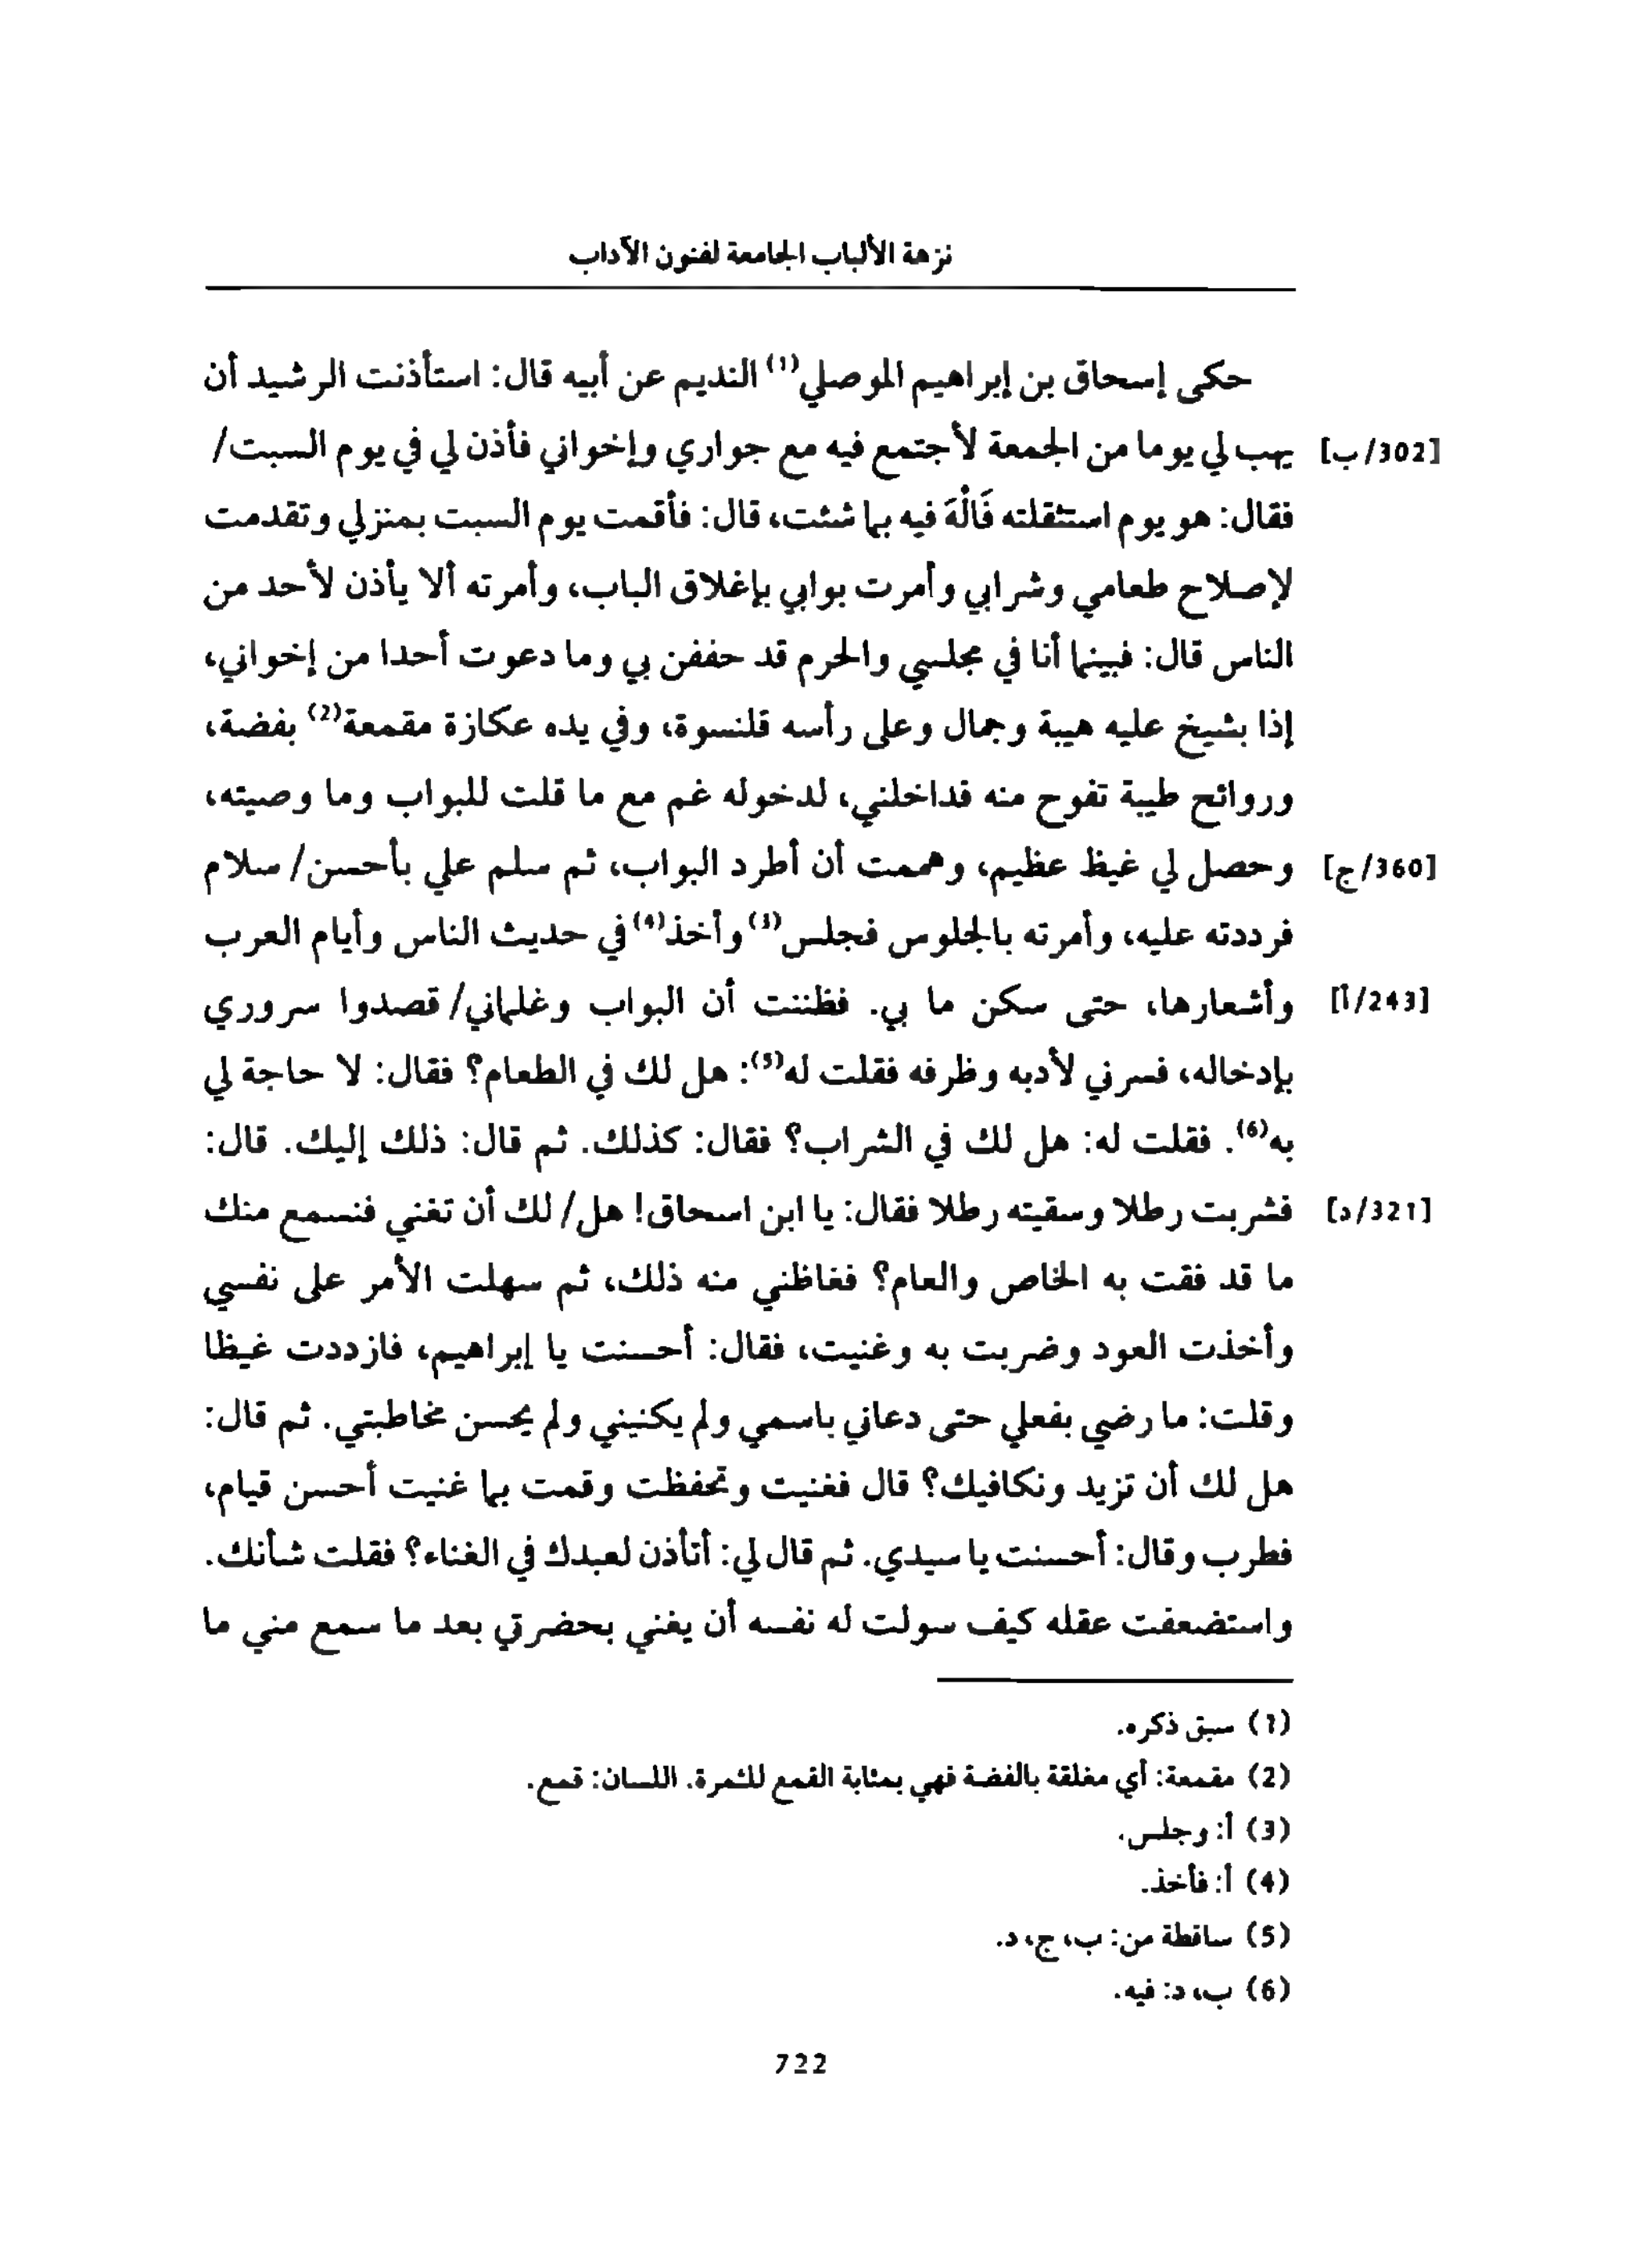 نزهة الألباب الجامعة لفنون الآداب
حكى إسحاق بن إبراهيم الموصلي(1) النديم عن أبيه قال: استأذنت الرشيد أن
[302/ب] يهب لي يوما من الجمعة لأجتمع فيه مع جواري وإخواني فأذن لي في يوم السبت/
فقال: هو يوم استثقلته فَالْهَ فيه بما شئت، قال: فأقمت يوم السبت بمنزلي وتقدمت
لإصلاح طعامي وشرابي وأمرت بوابي بإغلاق الباب، وأمرته ألا يأذن لأحد من
الناس قال: فبينما أنا في مجلسي والحرم قد حففن بي وما دعوت أحدا من إخواني،
إذا بشيخ عليه هيبة وجمال وعلى رأسه قلنسوة، وفي يده عكازة مقمعة(2) بفضة،
وروائح طيبة تفوح منه فداخلني، لدخوله غم مع ما قلت للبواب وما وصيته،
[360/ج] وحصل لي غيظ عظيم، وهممت أن أطرد البواب، ثم سلم علي بأحسن/ سلام
فرددته عليه، وأمرته بالجلوس فجلس(3) وأخذ(4) في حديث الناس وأيام العرب
[243/أ] وأشعارها، حتى سكن ما بي. فظننت أن البواب وغلماني/ قصدوا سروري
بإدخاله، فسرني لأدبه وظرفه فقلت له(5): هل لك في الطعام؟ فقال: لا حاجة لي
به(6). فقلت له: هل لك في الشراب؟ فقال: كذلك. ثم قال: ذلك إليك. قال:
[321/د] فشربت رطلا وسقيته رطلا فقال: يا ابن اسحاق! هل/ لك أن تغني فنسمع منك
ما قد فقت به الخاص والعام؟ فغاظني منه ذلك، ثم سهلت الأمر على نفسي
وأخذت العود وضربت به وغنيت، فقال: أحسنت يا إبراهيم، فازددت غيظا
وقلت: ما رضي بفعلي حتى دعاني باسمي ولم يكنيني ولم يحسن مخاطبتي. ثم قال:
هل لك أن تزيد ونكافيك؟ قال فغنيت وتحفظت وقمت بما غنيت أحسن قيام،
فطرب وقال: أحسنت يا سيدي. ثم قال لي: أتأذن لعبدك في الغناء؟ فقلت شأنك.
واستضعفت عقله كيف سولت له نفسه أن يغني بحضرتي بعد ما سمع مني ما
(1) سبق ذكره.
(2) مقمعة: أي مغلقة بالفضة فهي بمثابة القمع للثمرة. اللسان: قمع.
(3) أ: وجلس.
(4) أ: فأخذ.
(5) ساقطة من: ب، ج، د.
(6) ب، د: فيه.
722